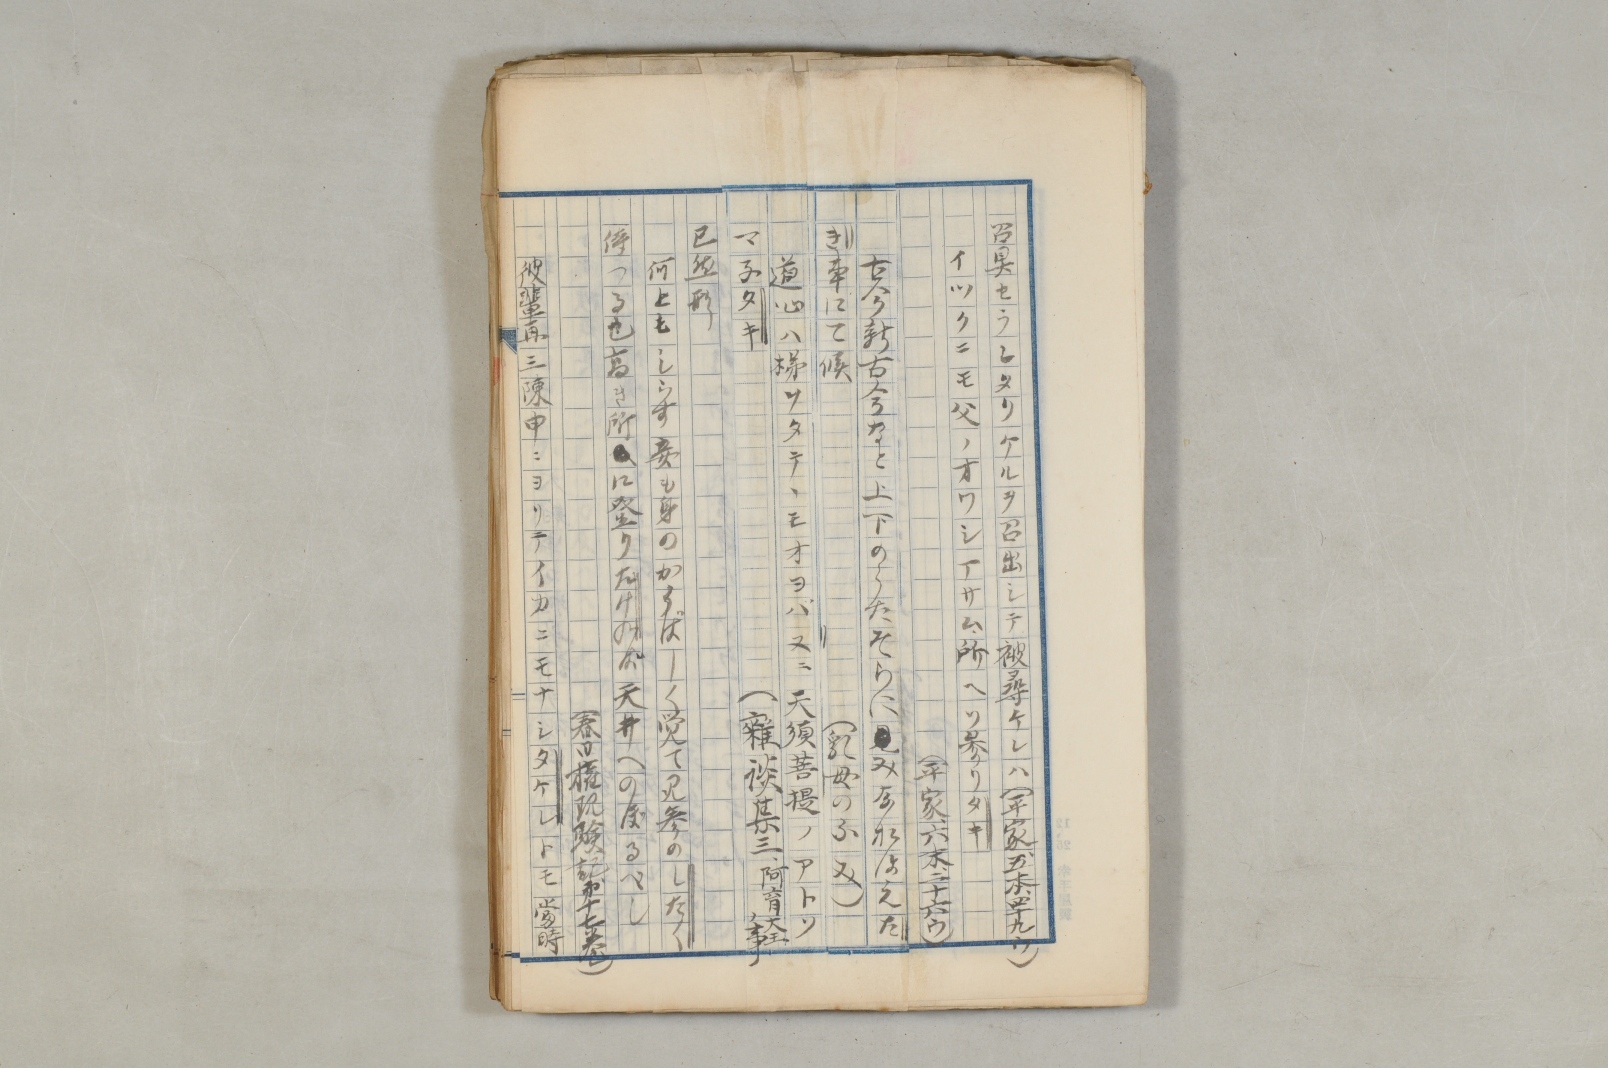 召具セラレタリケルヲ召出シテ被尋ケレハ(平家、五本、四十九ウ)
イツクニモ父ノオワシアサム所ヘソ参リタキ
(平家、六末、二十六ウ)
古今新古今なと上下のうたそらにみなおほえた
き事にて候 (乳母のふみ)
道心ハ梯ソタテヽモオヨバヌニ天須菩提ノアトソ
マネタキ (雜談集三、阿育大王事)
已然形
何上もしらす妾も身のかうばしく覚て見参のしたく
侍つる也高き所に登りたけれバ天井へのぼるべし
(春日権現験記か十七巻)
彼輩再三陳申ニヨリテイカニモナシタケレトモ當時